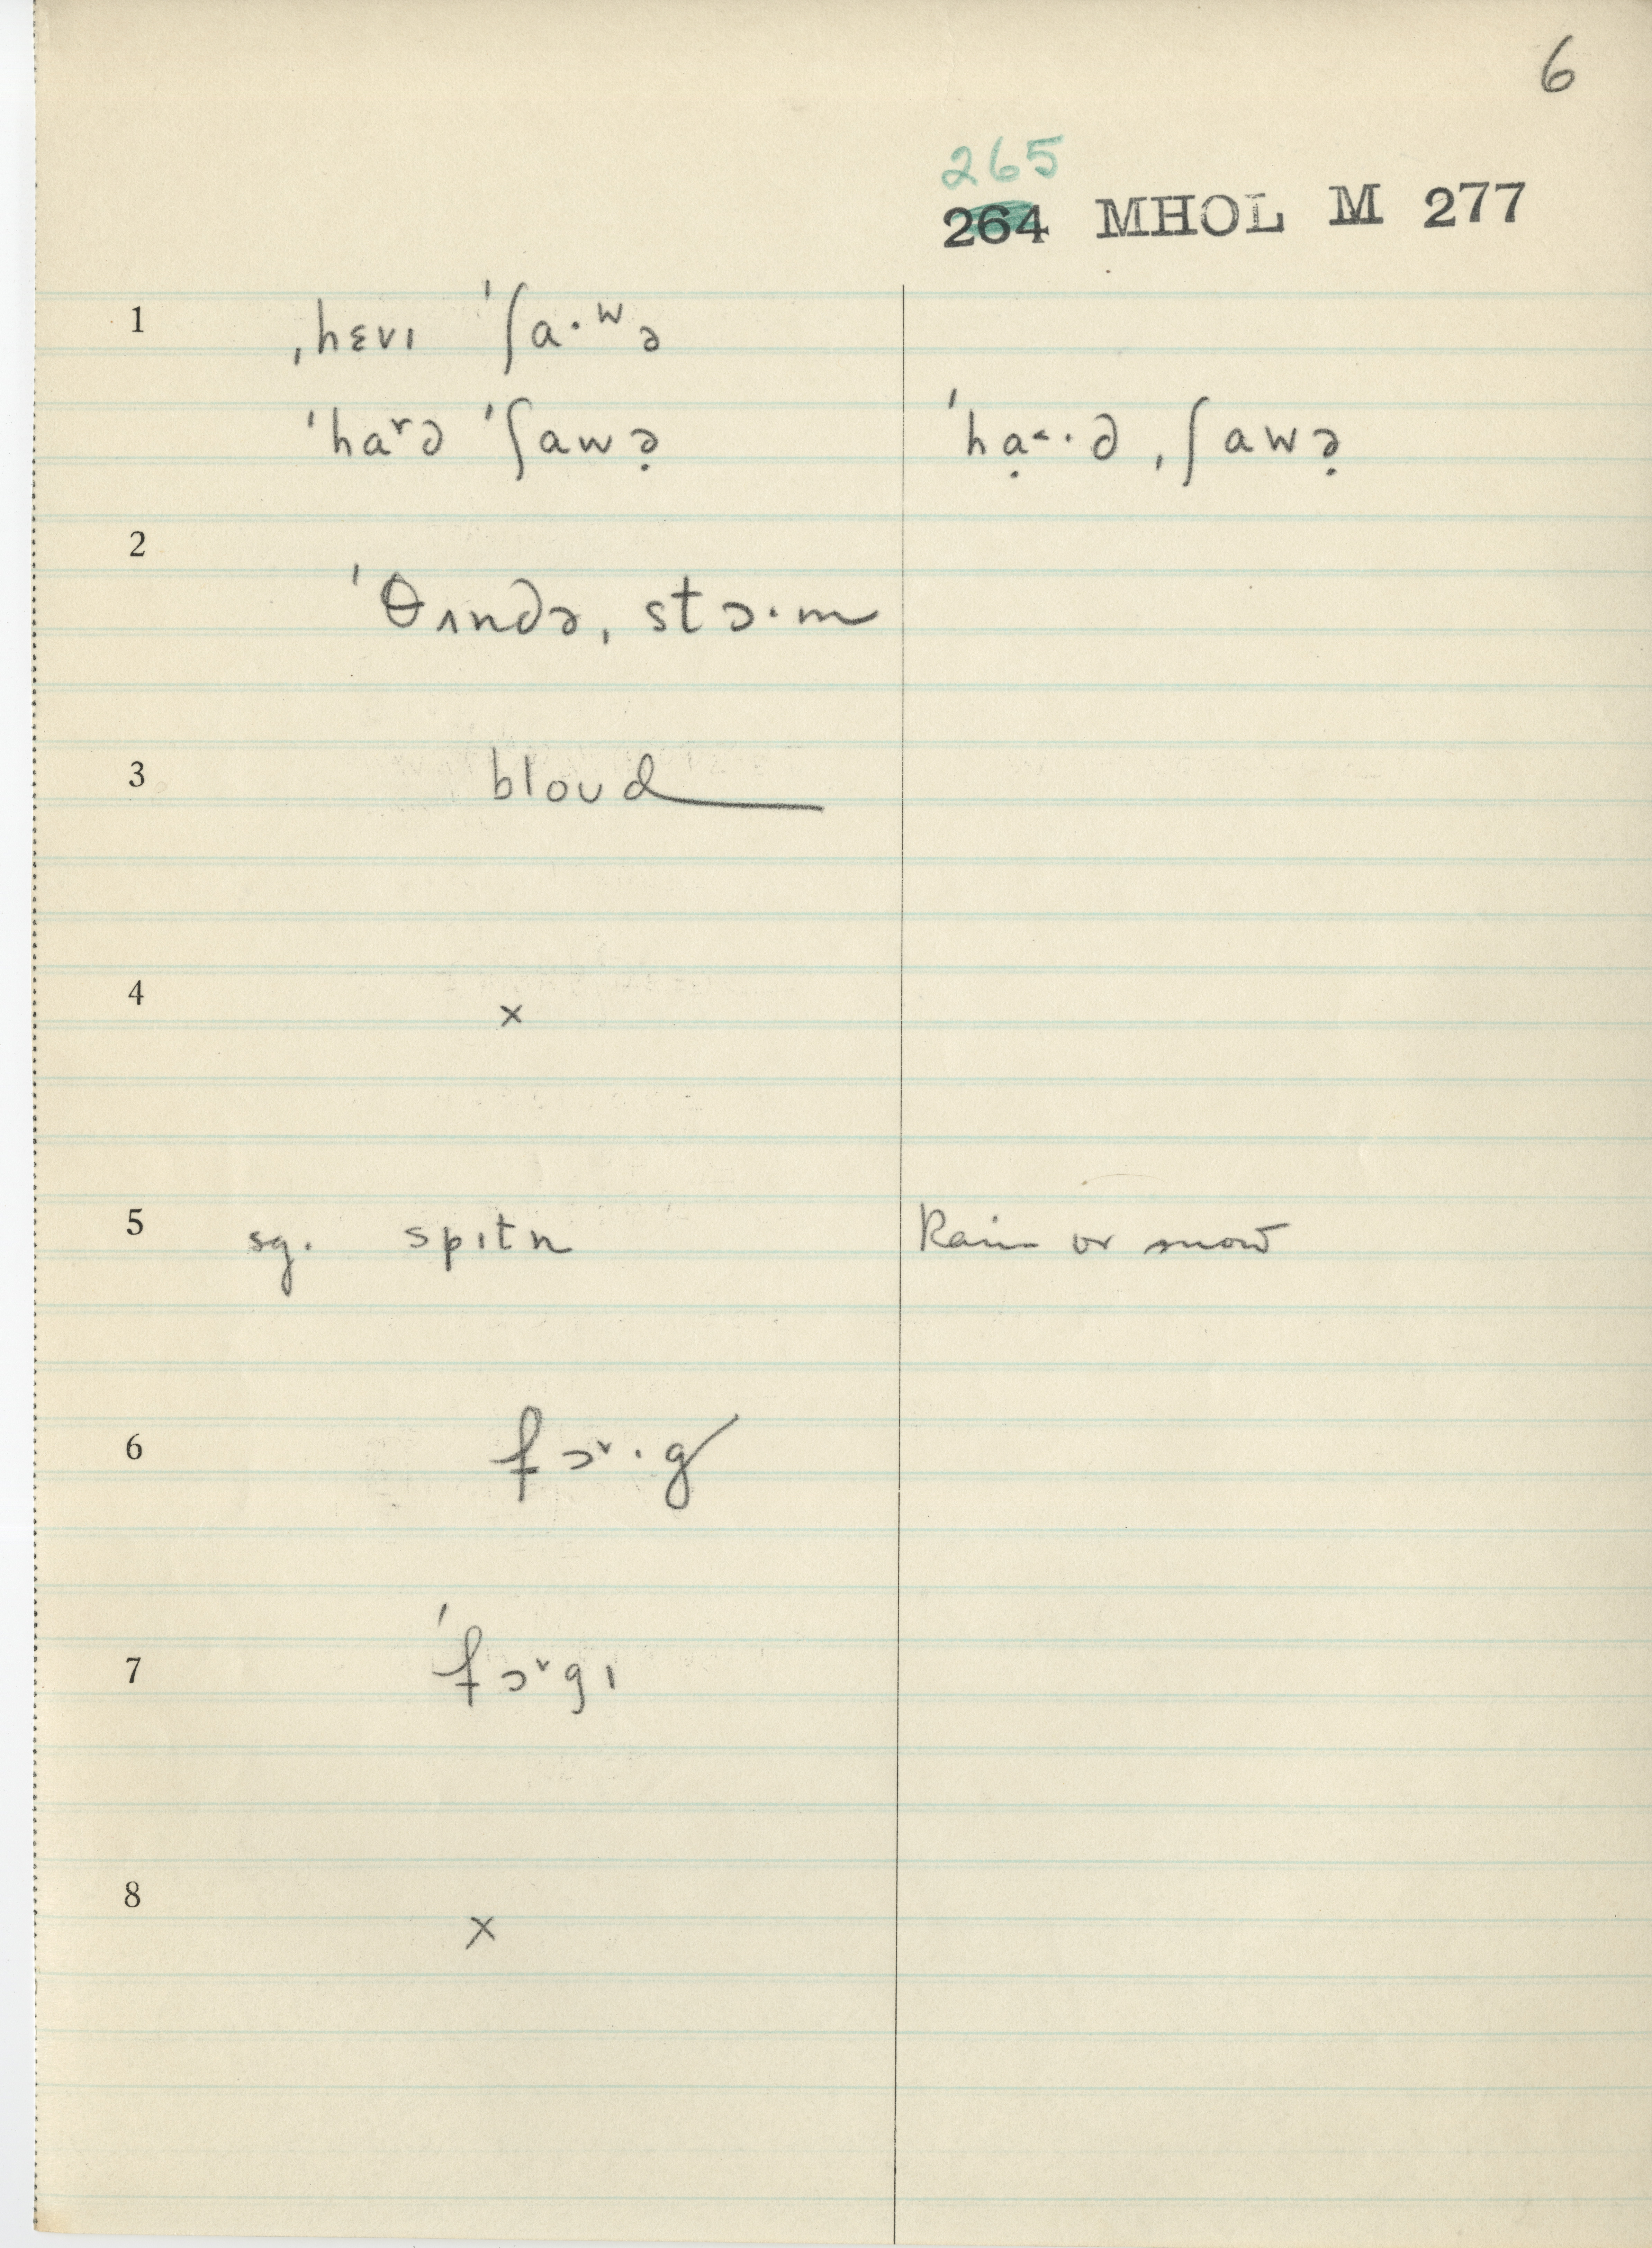 6
265
264 MHOL M 277
1 ˌhɛvɪ ˈʃa·ʷə
ˈha˅d ˈʃawə̣ ˈhạ˂·d ˌʃawə̣
2
ˈθʌndə ˌstɔ·m
3 bloud
4 ×
5 sg. spɪtn Rain or snow
6 fɔ˅·g
7 ˈfɔ˅gɪ
8 ×